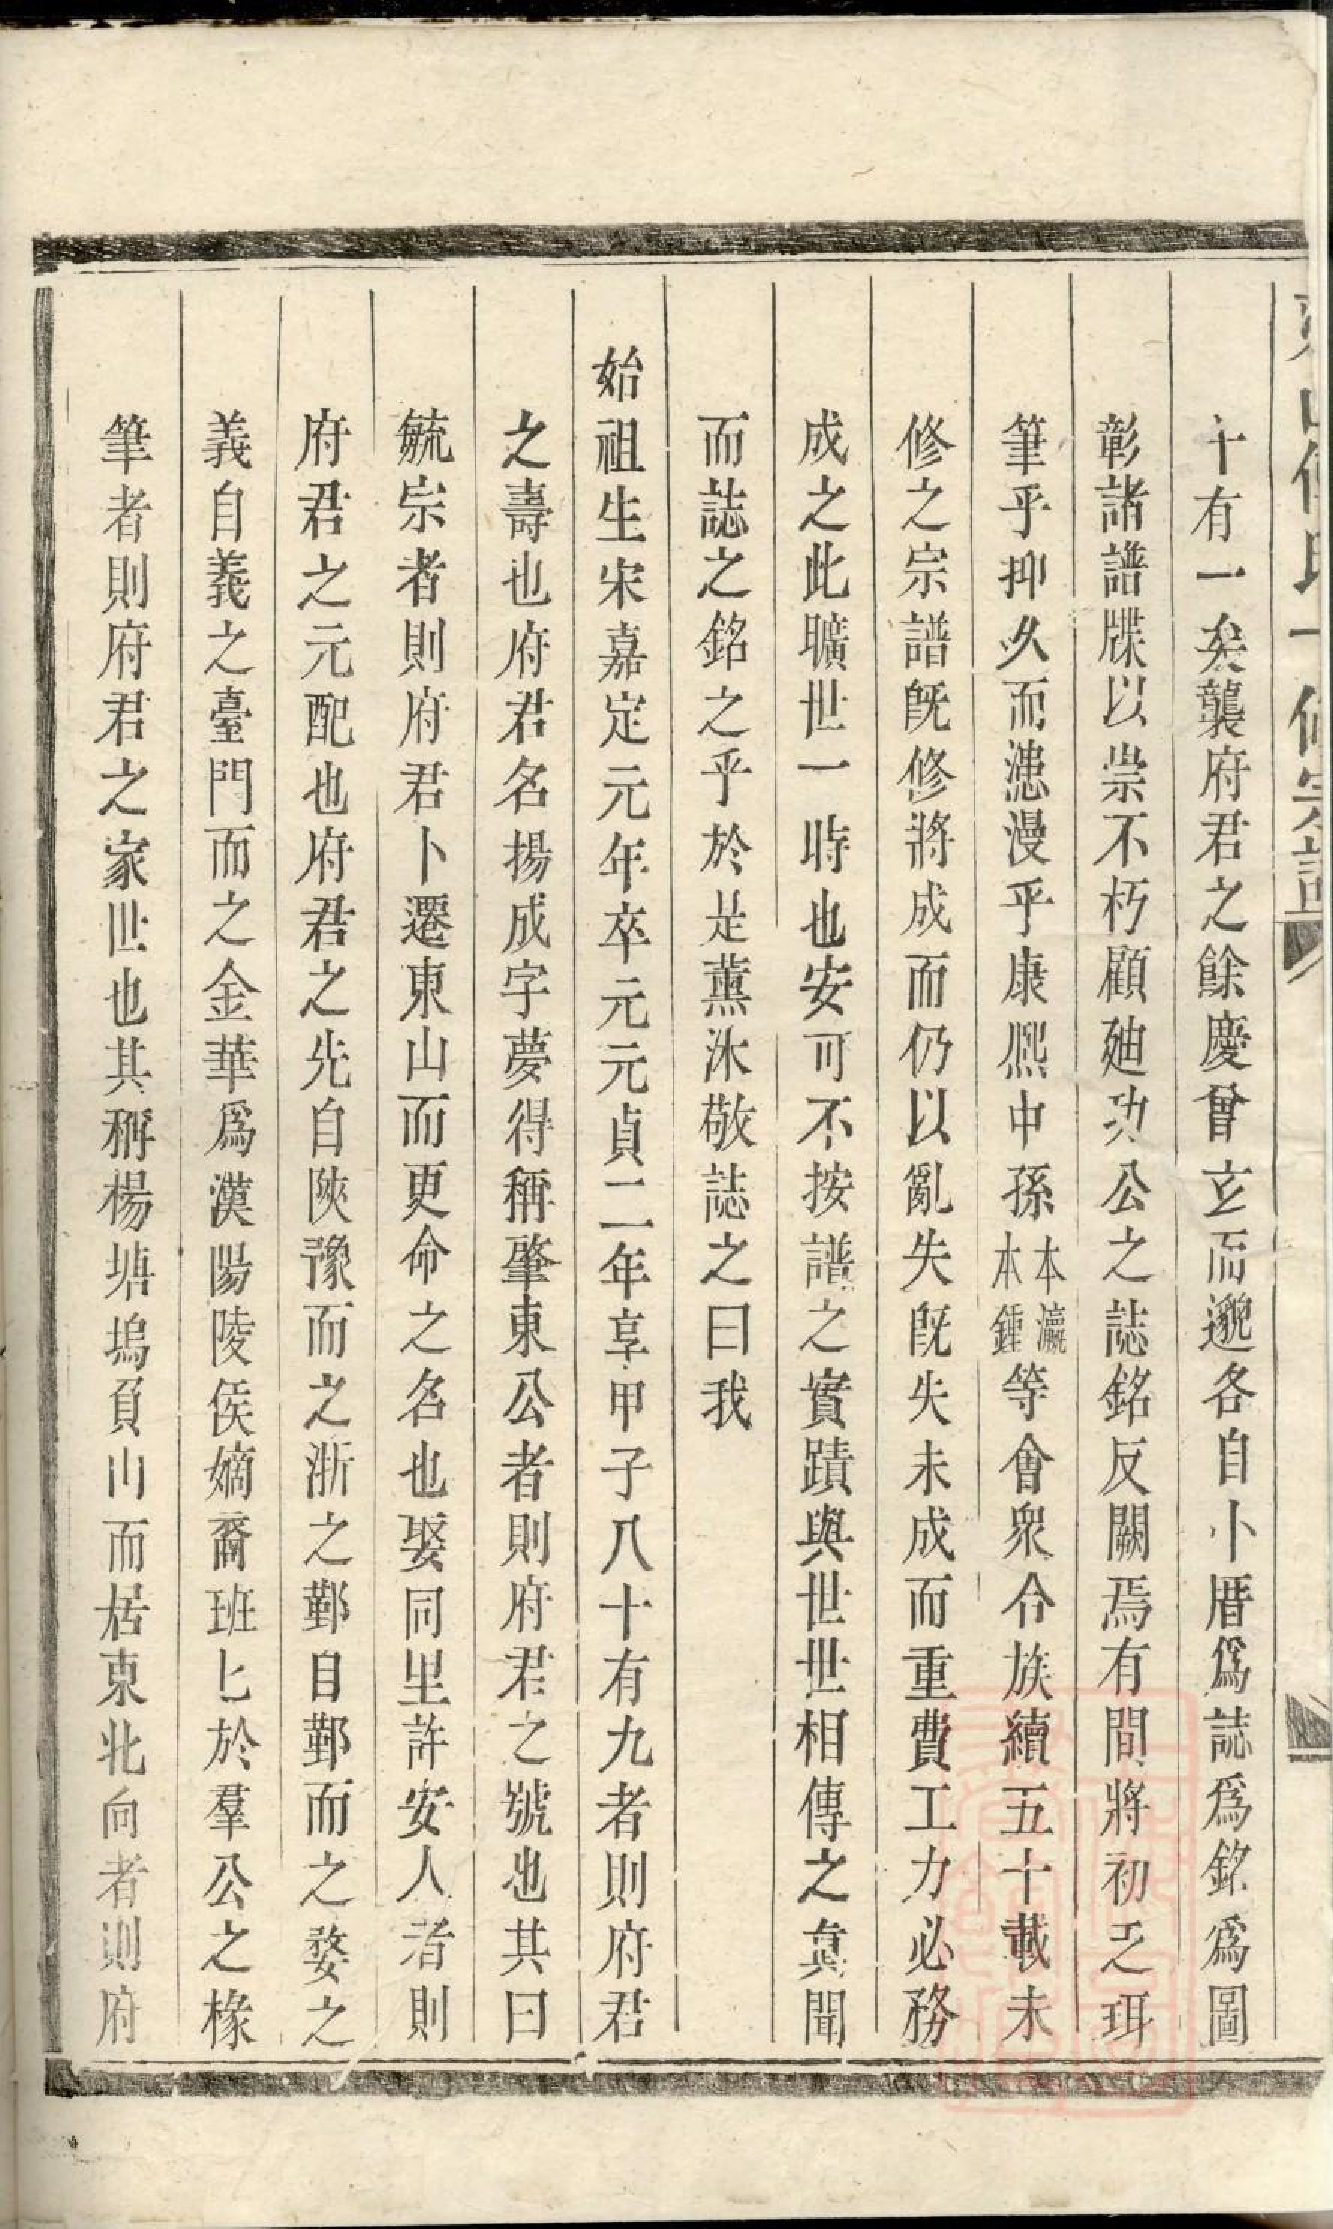 十有一矣襲府君之餘慶曾玄而邈各自卜厝爲誌爲銘爲圖
彰諸譜牒以崇不朽顧廸功公之誌銘反闕焉有間將初乏珥
筆乎抑久而漶漫乎康熙中孫本瀛本鍾等會衆合族續五十載未
修之宗譜既修將成而仍以亂失既失未成而重費工力必務
成之此曠世一時也安可不按譜之實蹟與世世相傳之眞聞
而誌之銘之乎於是薰沐敬誌之曰我
始祖生宋嘉定元年卒元元貞二年享甲子八十有九者則府君
之壽也府君名揚成字夢得稱肇東公者則府君之號也其曰
毓宗者則府君卜遷東山而更命之名也娶同里許安人者則
府君之元配也府君之先自陝豫而之浙之鄞自鄞而之婺之
義自義之臺門而之金華爲漢陽陵侯嫡裔班匕於羣公之椽
筆者則府君之家世也其稱楊塘塢負山而居東北向者則府